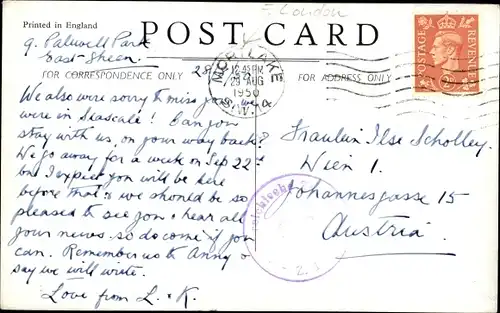 Printed in England
POST CARD
London
9. Palewell Park
East Sheen
FOR CORRESPONDENCE ONLY
FOR ADDRESS ONLY
28
MORTLAKE
12.45 PM
29 AUG
1950
S.W.14
POSTAGE
REVENUE
We also were sorry to miss you, we
were in Seascale! Can you
stay with us, on your way back?
We go away for a week on Sep 22nd
but I expect you will be here
before that & we should be so
pleased to see you & hear all
your news, so do come if you
can. Remember us to Anny &
say we will write.
Love from L. & K.
Fräulein Ilse Scholley
Wien 1.
Johannesgasse 15
Austria.